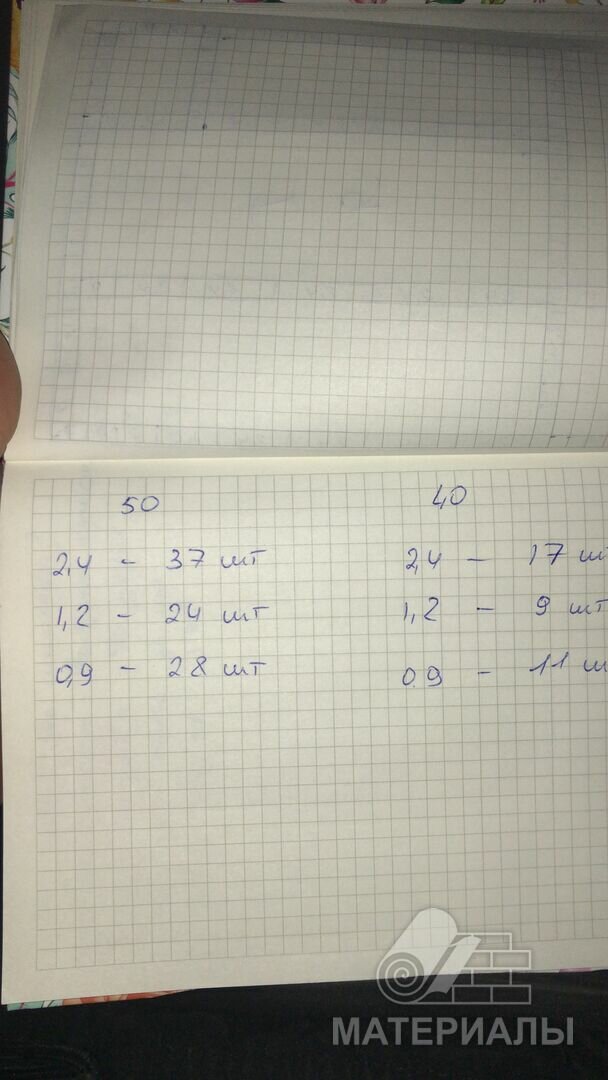 50 40
2,4 - 37 шт 2,4 - 17 шт
1,2 - 24 шт 1,2 - 9 шт
0,9 - 28 шт 0.9 - 11 ш
МАТЕРИАЛЫ